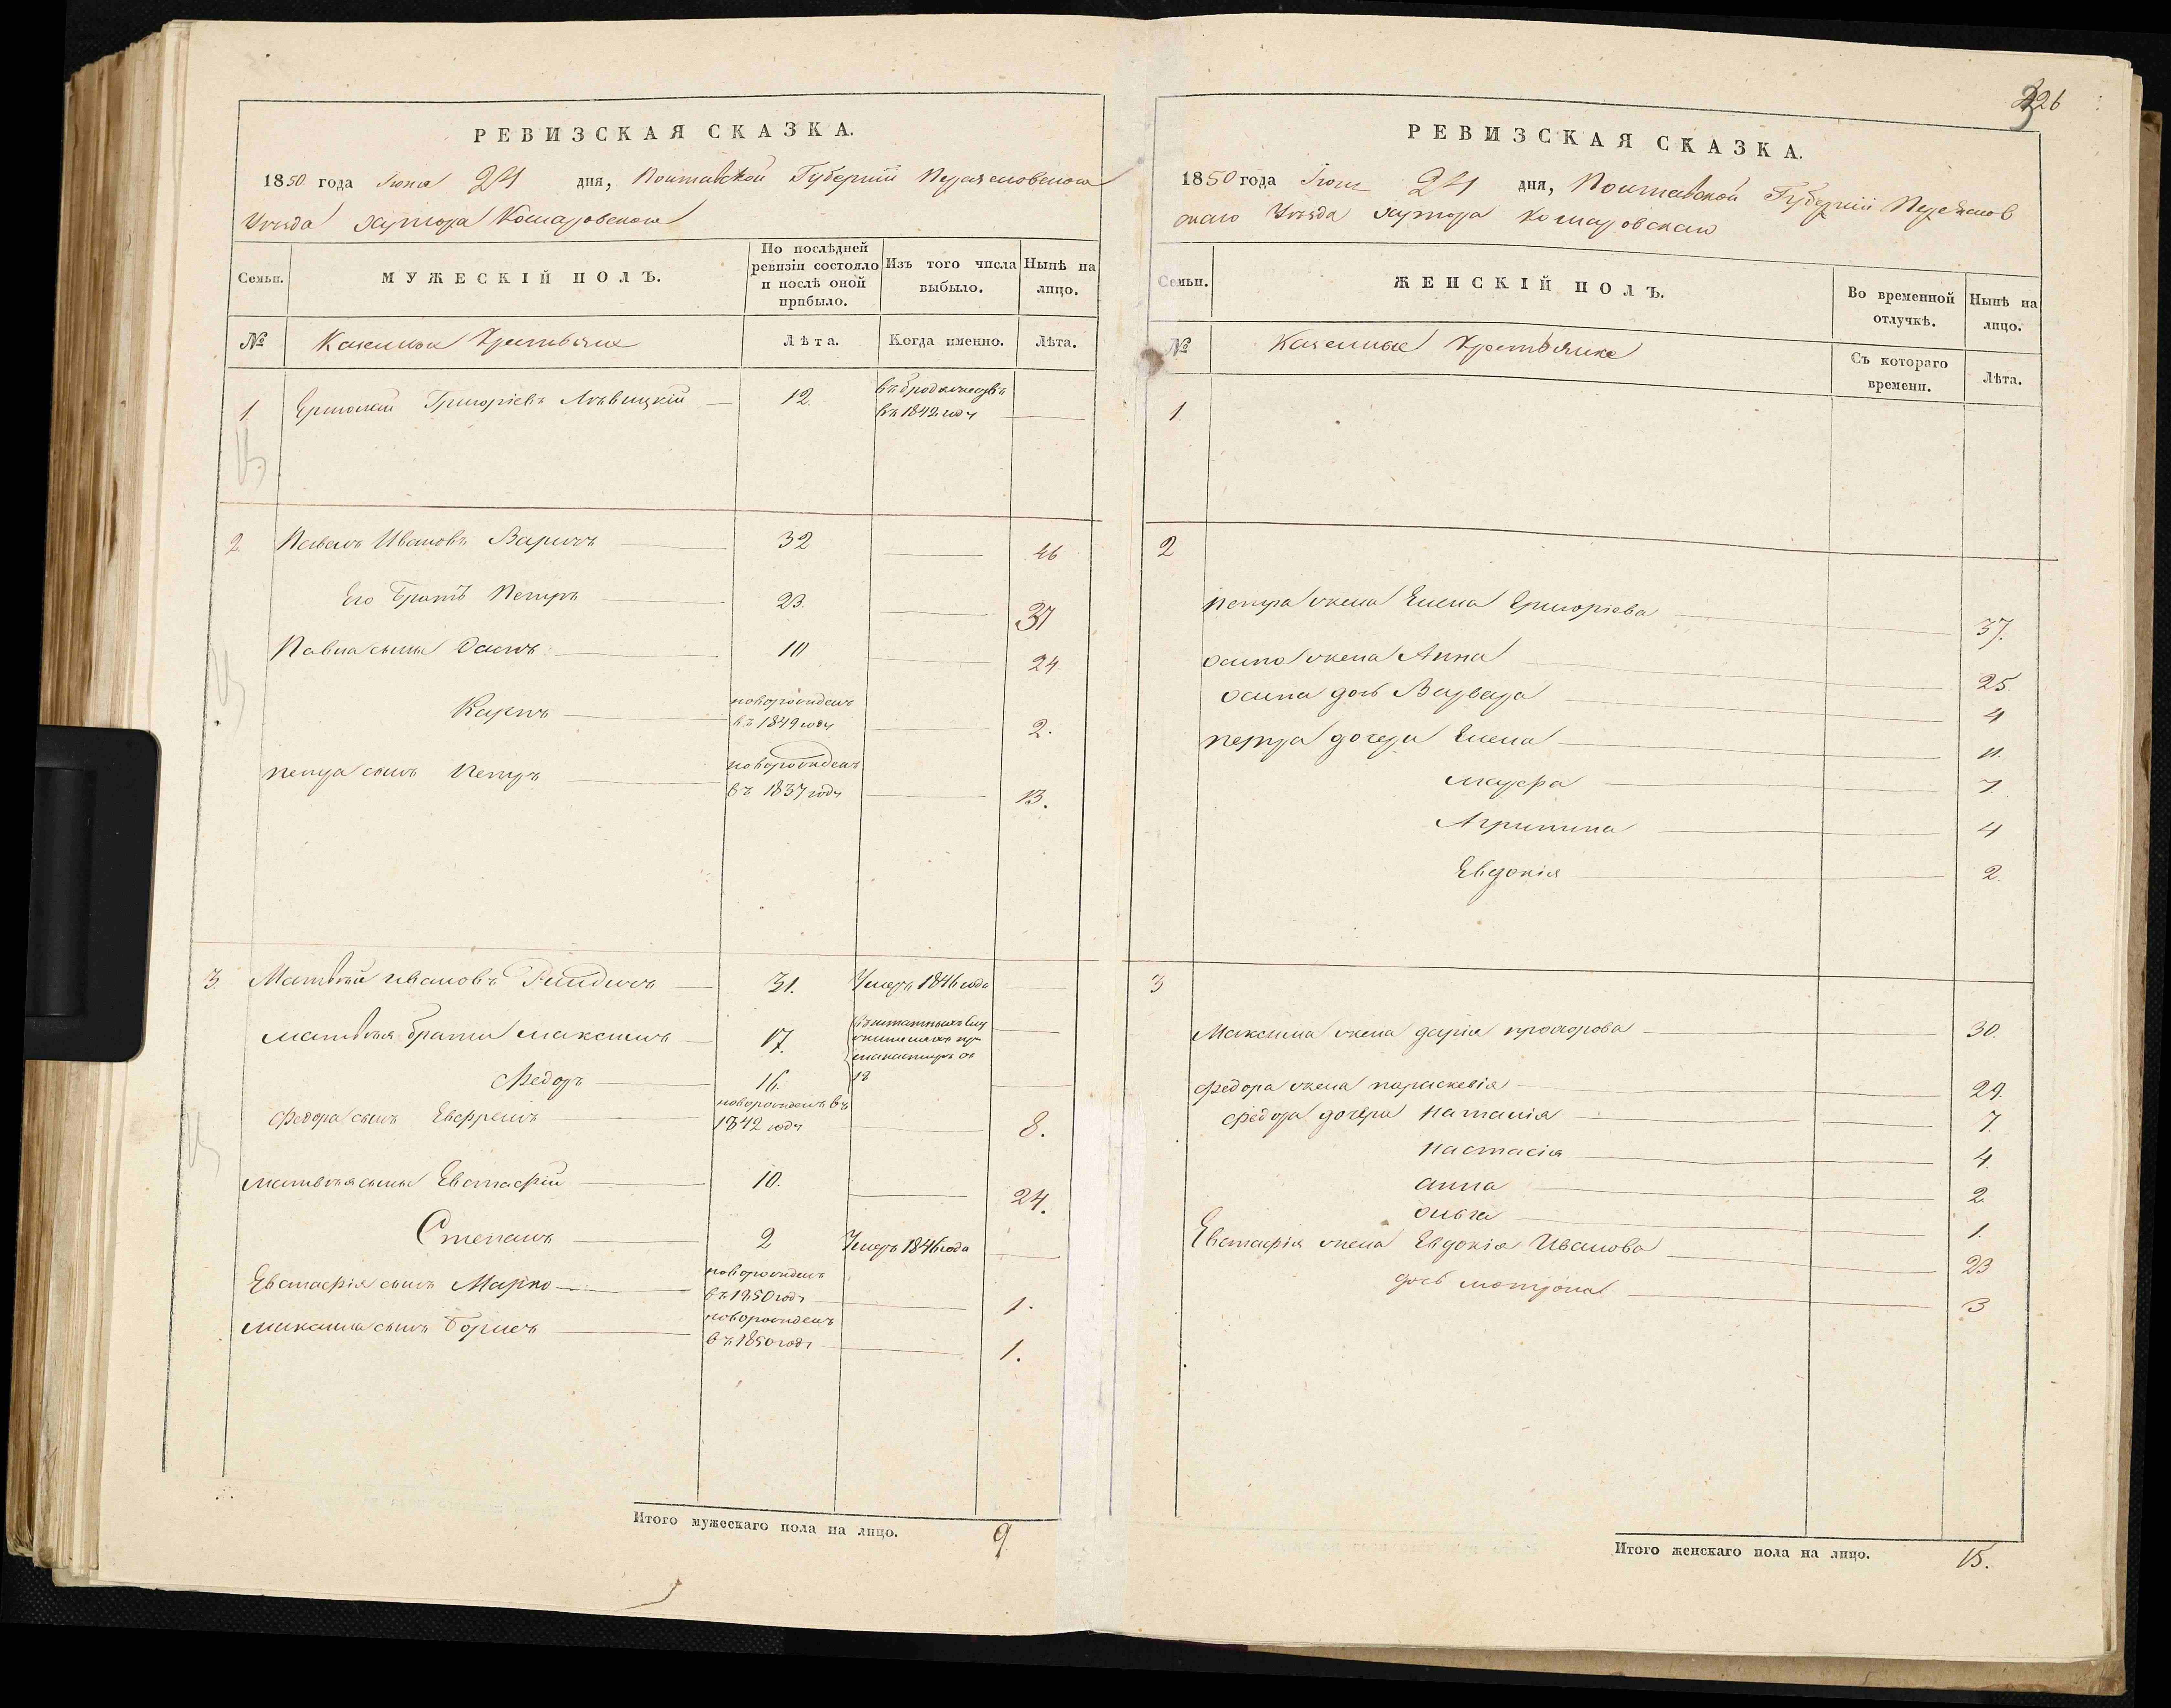 326
РЕВИЗСКАЯ СКАЗКА.
1850 года Іюня 24 дня, Полтавской Губерніи Переясловского
Уѣзда хутора Комаровского
Семьи.
МУЖЕСКІЙ ПОЛЪ.
По послѣдней ревизіи состояло и послѣ оной прибыло.
Изъ того числа выбыло.
Нынѣ на лицо.
№
Казенныя Крестьяне
Лѣта.
Когда именно.
Лѣта.
1. Ермолай Григоріевъ 12. въ 1842 году
2. Павелъ Ивановъ Варичъ 32 46
Его Братъ Петръ 23. 37
Павла сыны Осипъ 10 24
Карпъ новорожденъ въ 1849 году 2.
Петра сынъ Петръ новорожденъ въ 1837 году 13.
3. Матвѣй Ивановъ 31. Умеръ 1846 года
Матвѣя братья Максимъ 17.
Федоръ 16.
Федора сынъ Евфремъ новорожденъ въ 1842 году 8.
Матвѣя сыны Евстафій 10. 24.
Степанъ 2 Умеръ 1846 года
Евстафія сынъ Марко новорожденъ въ 1850 году 1.
Максима сынъ Борисъ новорожденъ въ 1850 году 1.
Итого мужескаго пола на лицо. 9
РЕВИЗСКАЯ СКАЗКА.
1850 года Іюня 24 дня, Полтавской Губерніи Переяслов
скаго Уѣзда хутора Комаровскаго
Семьи.
ЖЕНСКІЙ ПОЛЪ.
Во временной отлучкѣ.
Нынѣ на лицо.
№
Казенные Крестьянке
Съ котораго времени.
Лѣта.
1.
2
Петра жена Елена Григоріева 37.
Осипа жена Анна 25.
Осипа дочь Варвара 4
Петра дочери Елена 11.
Мауфра 7
Агрипина 4
Евдокія 2.
3
Максима жена Дарія Прохорова 30.
Федора жена Параскевія 29.
Федора дочери Наталія 7.
Настасія 4.
Анна 2.
Ольга 1.
Евстафія жена Евдокія Иванова 23
дочь Матрона 3
Итого женскаго пола на лицо. 15.